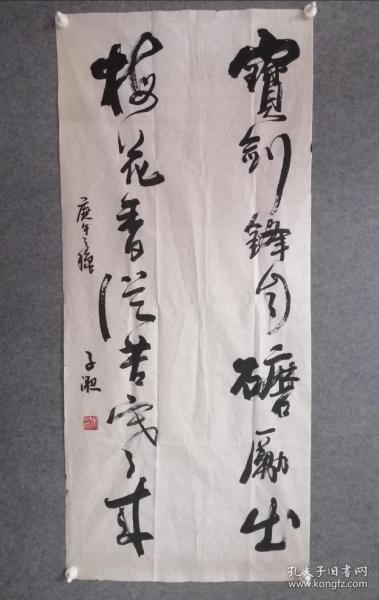 寶劍鋒自磨勵出
梅花香從苦寒來
庚午之
子
孔夫子旧书网
www.kongfz.com